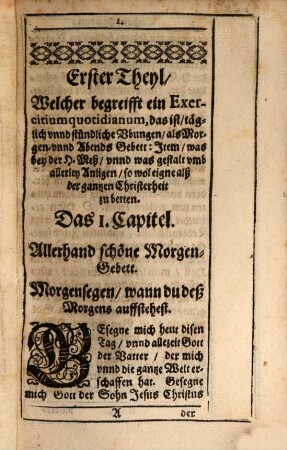 1.
Erster Theyl/
Welcher begreifft ein Exer-
citium quotidianum, das ist/täg-
lich vnnd stündliche Vbungen/als Mor-
gen-vnnd Abends Gebett: Item/was
bey der H. Meß/vnnd was gestalt vmb
allerley Anligen/so wol eigne alß
der gantzen Christerheit
zu betten.
Das 1. Capitel.
Allerhand schöne Morgen-
Gebett.
Morgensegen/wann du deß
Morgens auffstehest.
GEsegne mich heut disen
Tag/vnnd allezeit Gott
der Vatter/der mich
vnnd die gantze Welt er-
schaffen hat. Gesegne
mich Gott der Sohn Jesus Christus
A der